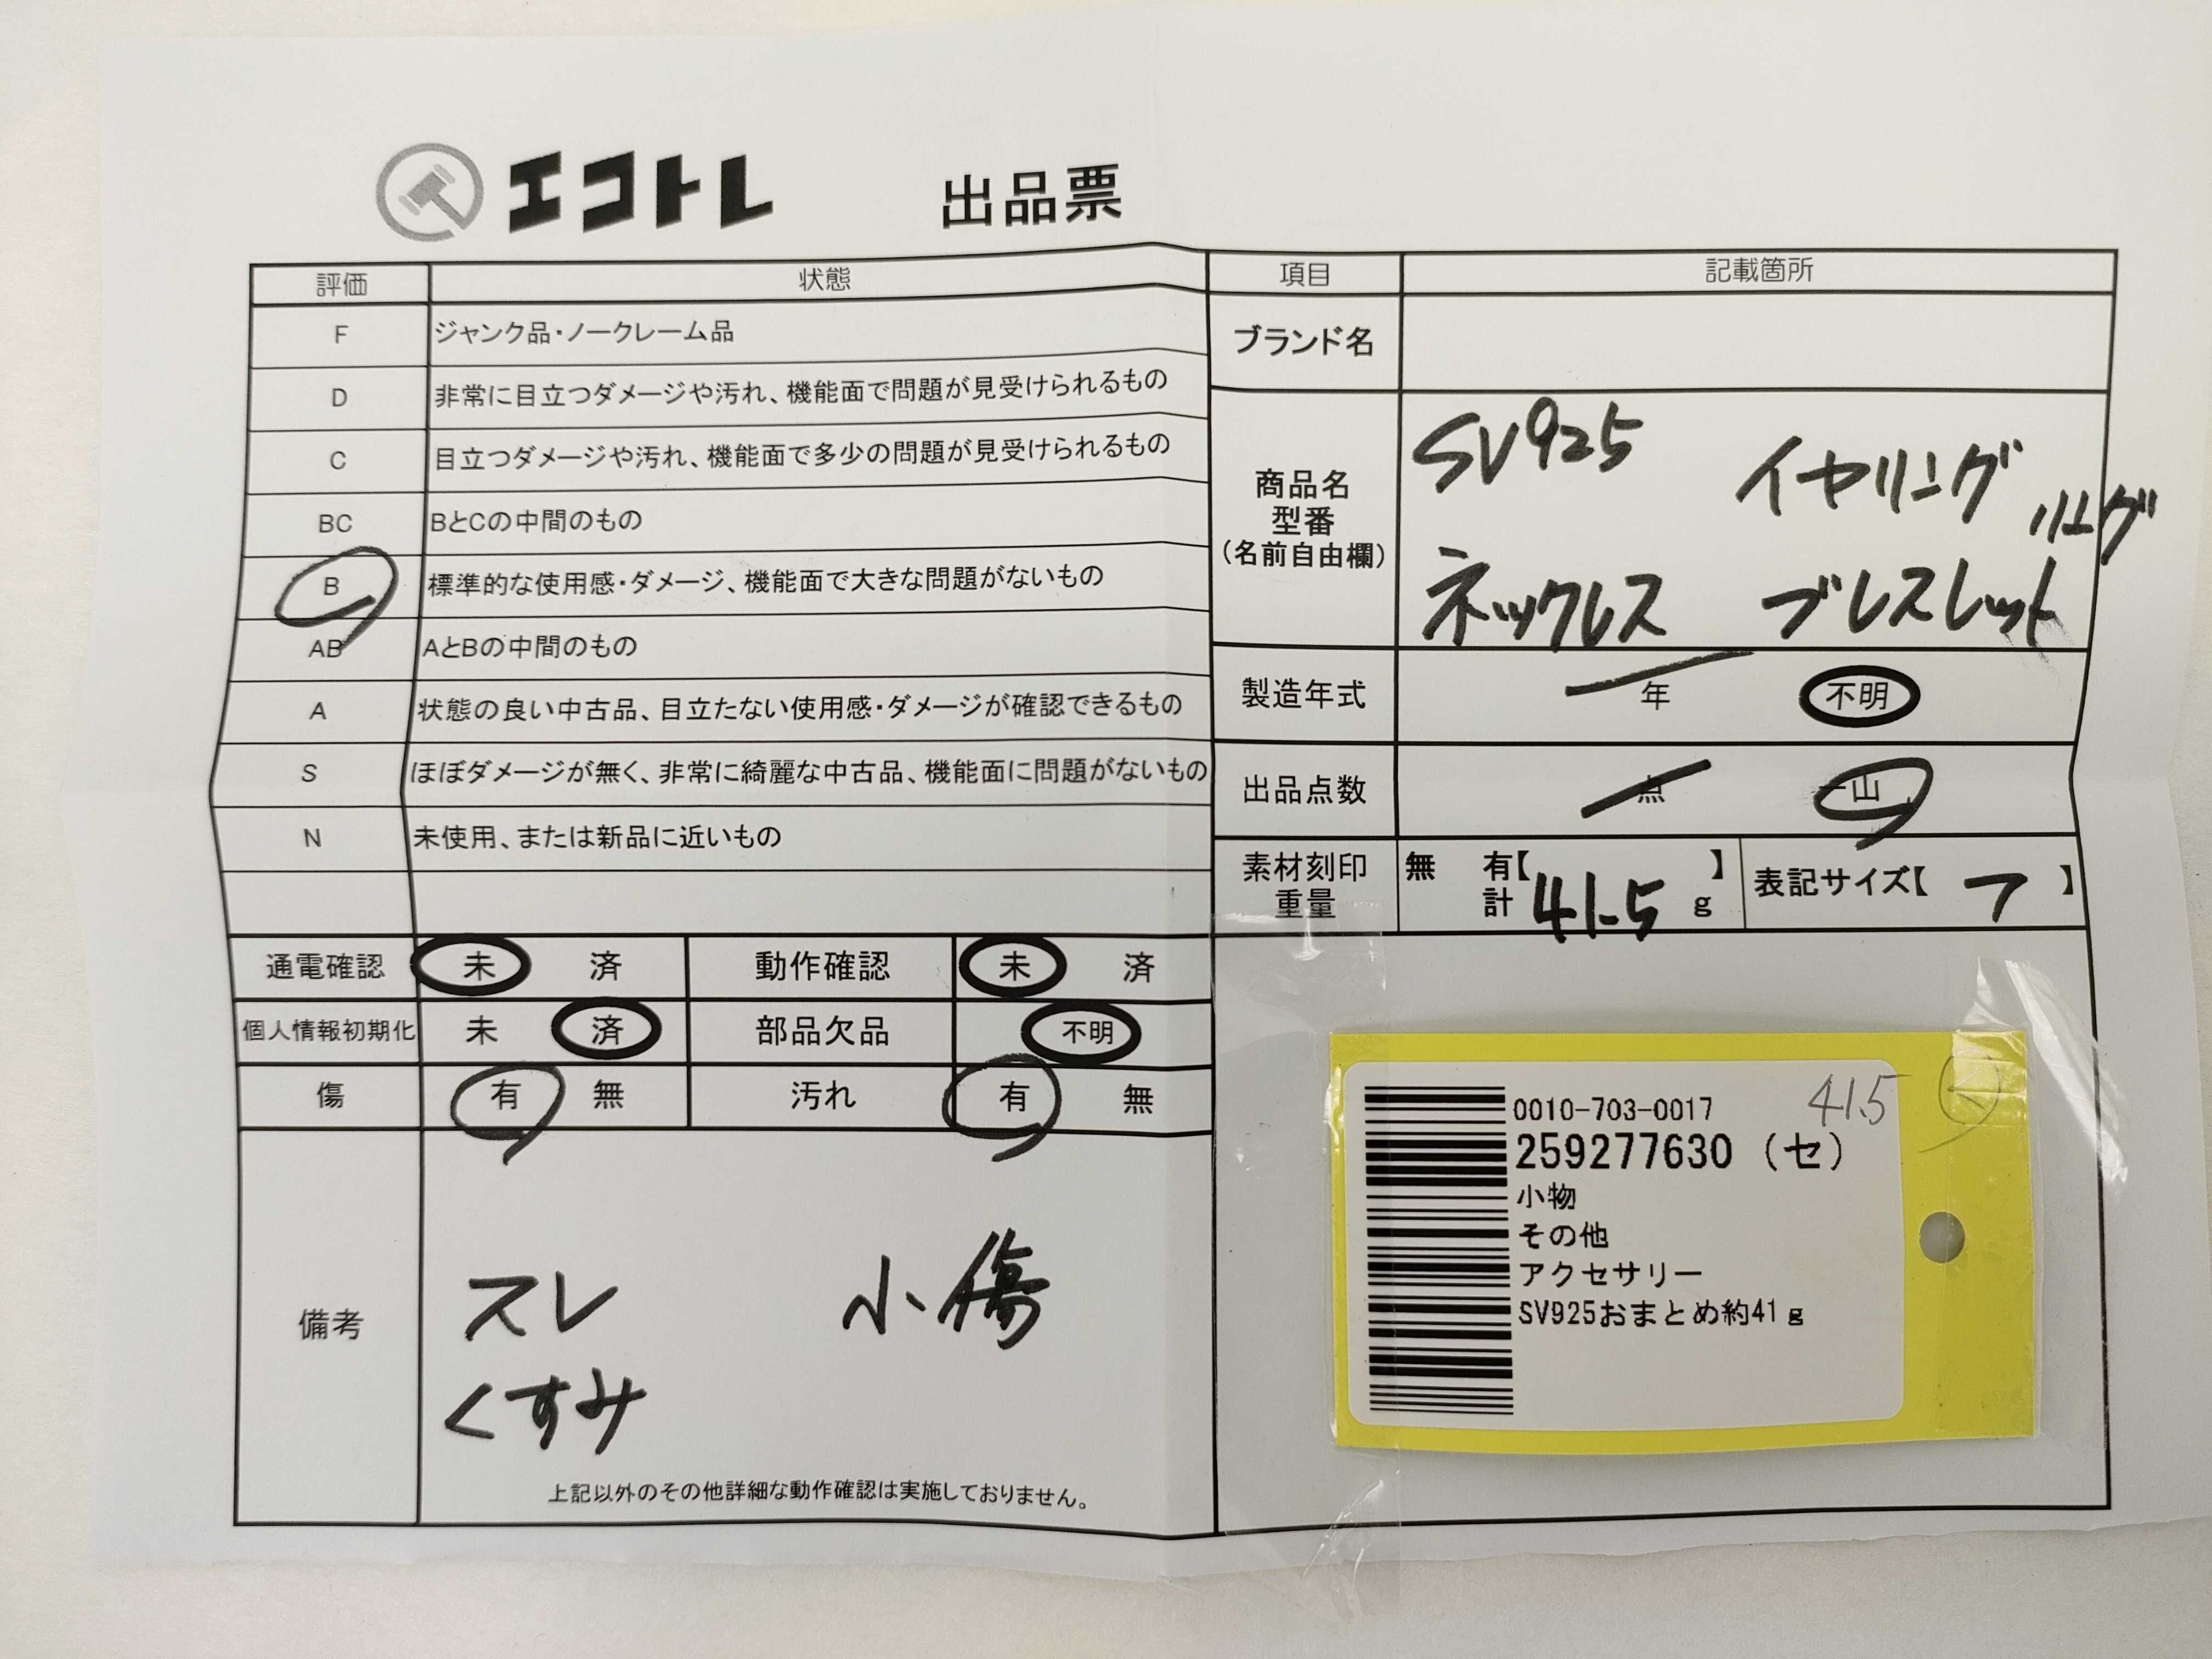 エコトレ 出品票
評価 状態
F ジャンク品・ノークレーム品
D 非常に目立つダメージや汚れ、機能面で問題が見受けられるもの
C 目立つダメージや汚れ、機能面で多少の問題が見受けられるもの
BC BとCの中間のもの
B 標準的な使用感・ダメージ、機能面で大きな問題がないもの
AB AとBの中間のもの
A 状態の良い中古品、目立たない使用感・ダメージが確認できるもの
S ほぼダメージが無く、非常に綺麗な中古品、機能面に問題がないもの
N 未使用、または新品に近いもの
通電確認 未 済 動作確認 未 済
個人情報初期化 未 済 部品欠品 不明
傷 有 無 汚れ 有 無
備考
スレ 小傷
くすみ
上記以外のその他詳細な動作確認は実施しておりません。
項目 記載箇所
ブランド名
商品名
型番
(名前自由欄)
SV925 イヤリング リング
ネックレス ブレスレット
製造年式 年 不明
出品点数 点 一山
素材刻印
重量
無 有【 】
計 41.5 g
表記サイズ【 フ 】
0010-703-0017 41.5
259277630 (セ)
小物
その他
アクセサリー
SV925おまとめ約41g